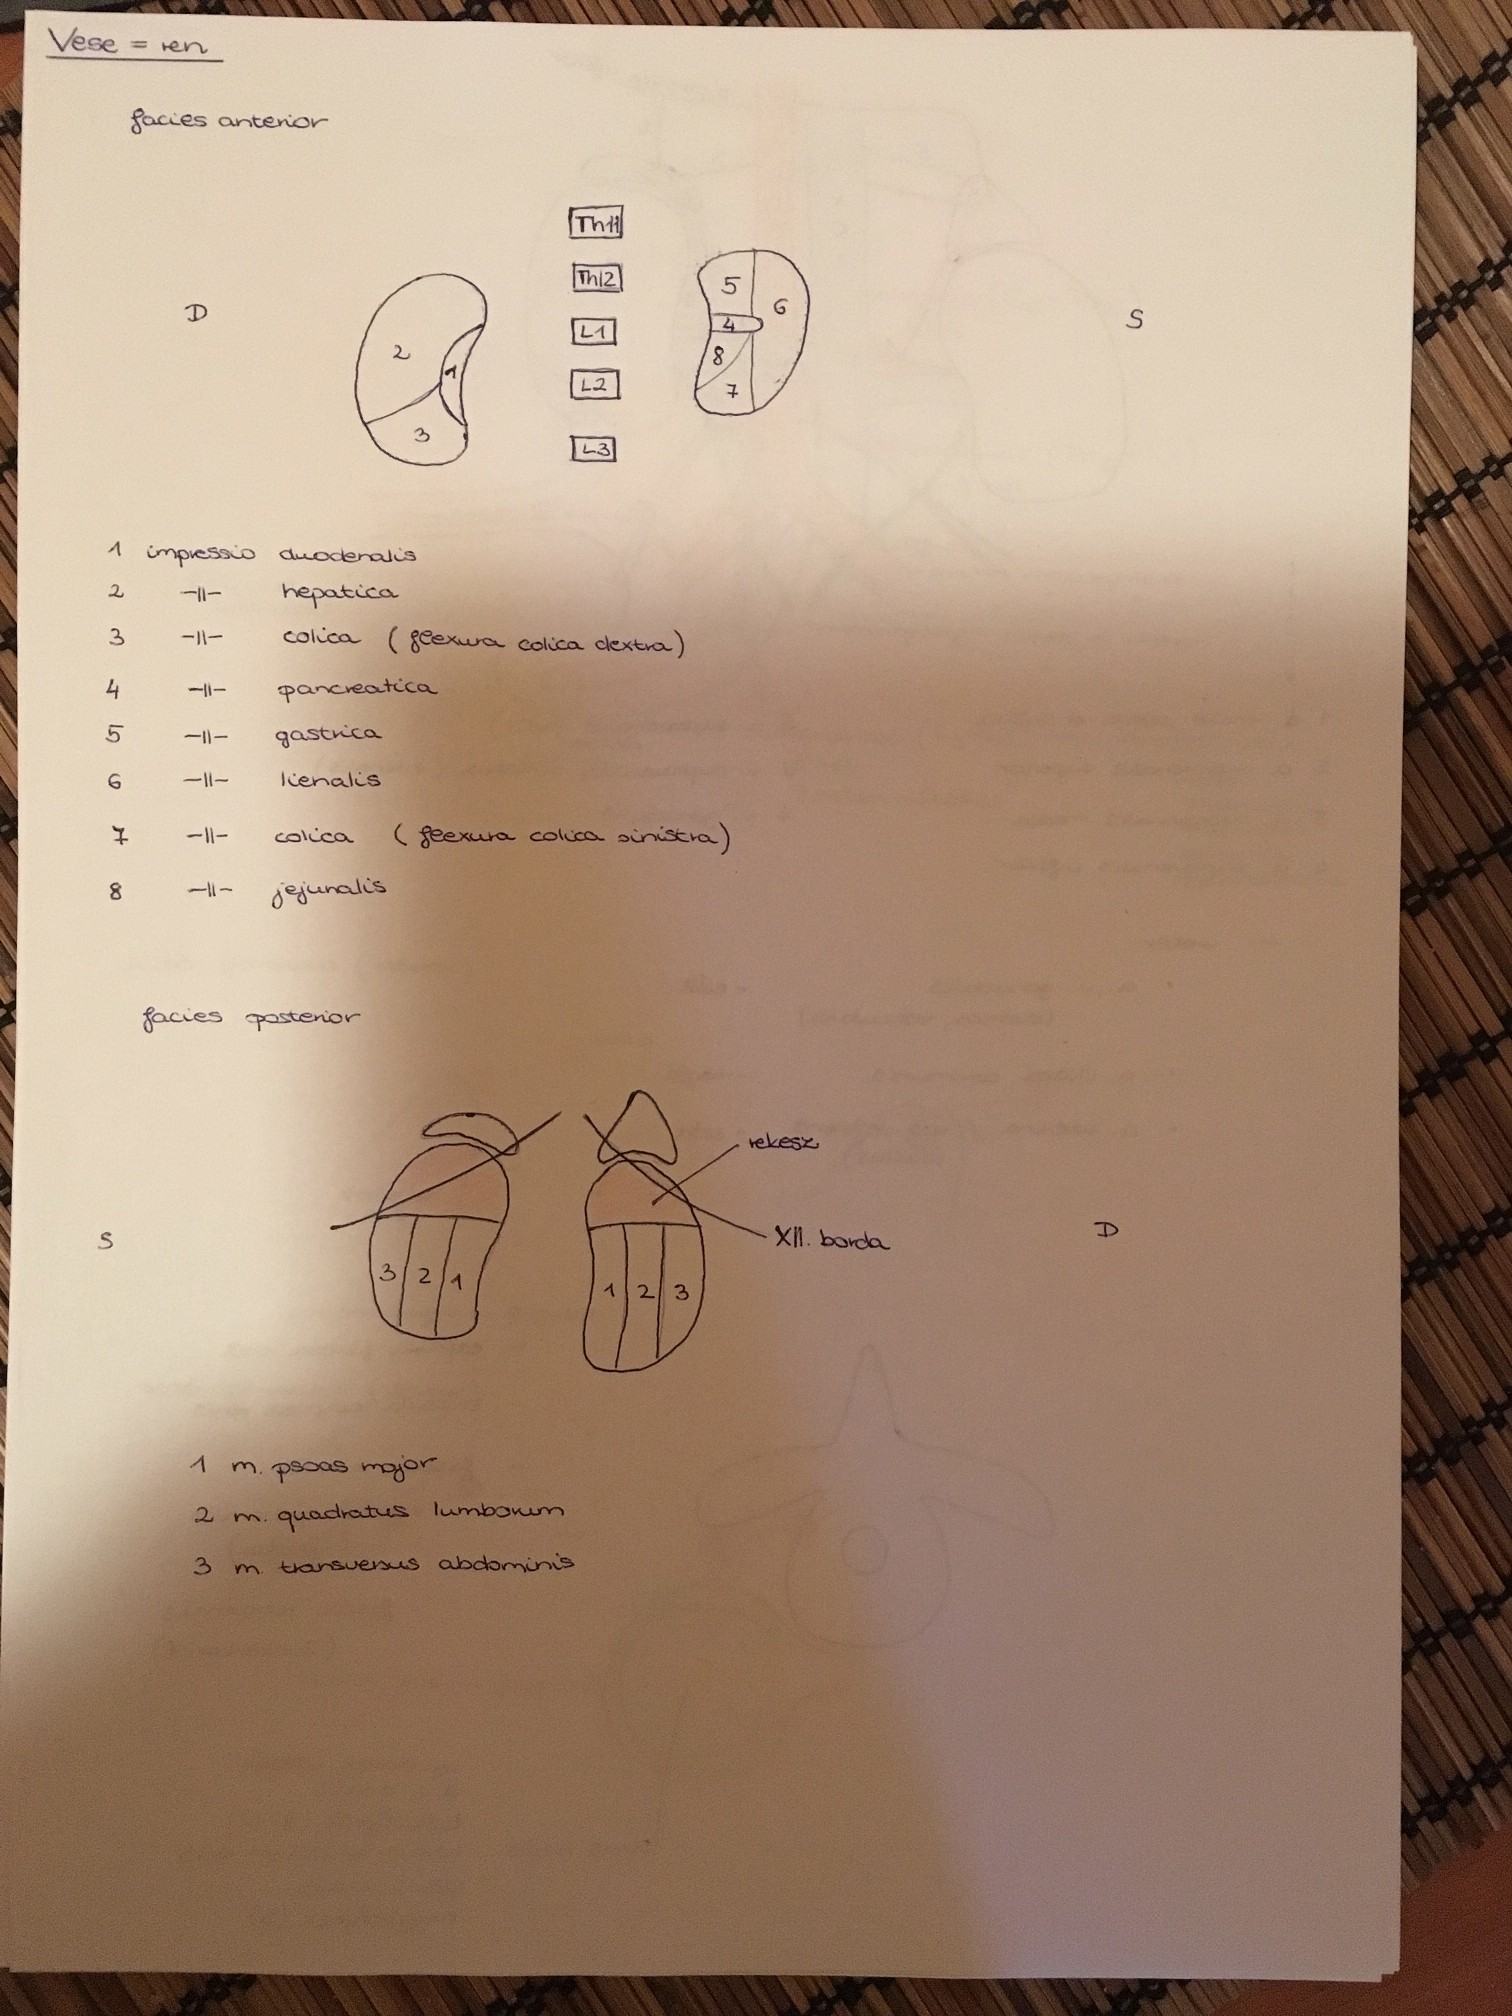 Vese = ren
facies anterior
Th11
Th12
L1
L2
L3
D
2
1
3
5
6
4
8
7
S
1 impressio duodenalis
2 -||- hepatica
3 -||- colica (flexura colica dextra)
4 -||- pancreatica
5 -||- gastrica
6 -||- lienalis
7 -||- colica (flexura colica sinistra)
8 -||- jejunalis
facies posterior
rekesz
XII. borda
S
D
3 2 1
1 2 3
1 m. psoas major
2 m. quadratus lumborum
3 m. transversus abdominis